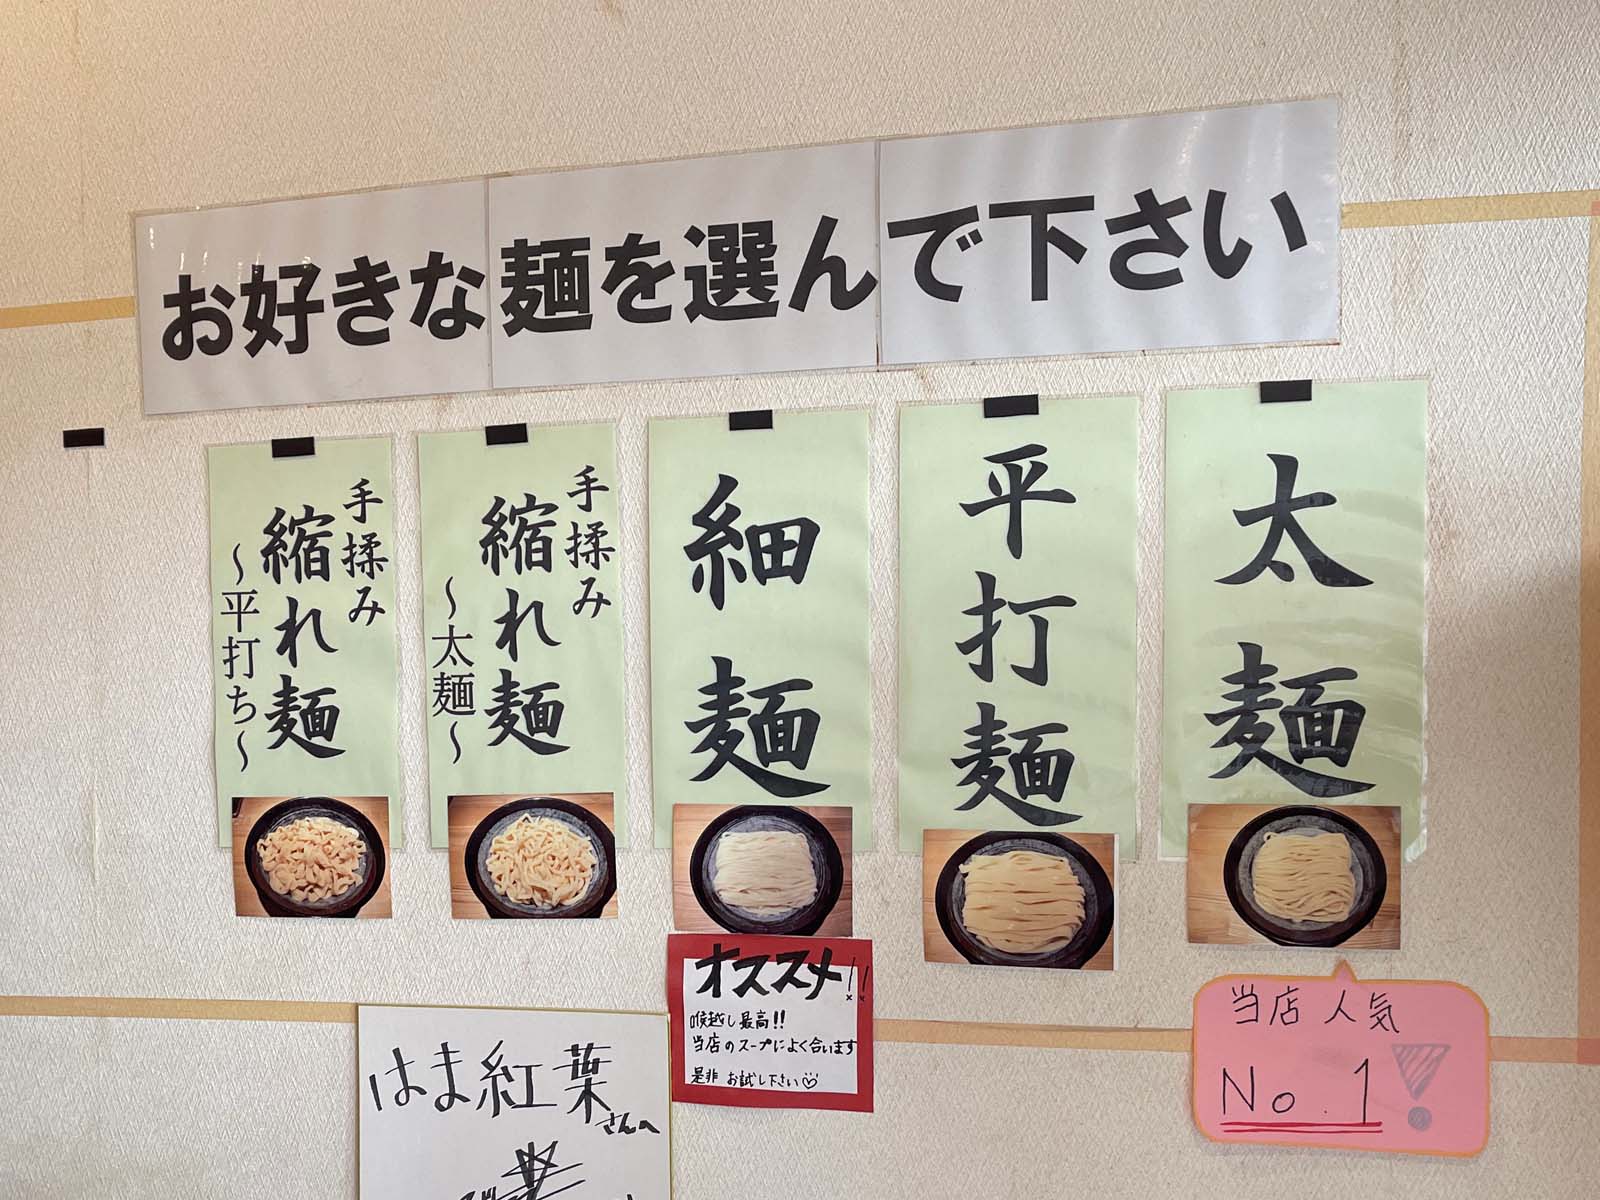 お好きな麺を選んで下さい
太麺
平打麺
細麺
手揉み
縮れ麺
～太麺～
手揉み
縮れ麺
～平打ち～
当店人気
No.1
オススメ!!
喉越し最高!!
当店のスープによく合います
是非 お試し下さい♡
はま紅葉
さんへ